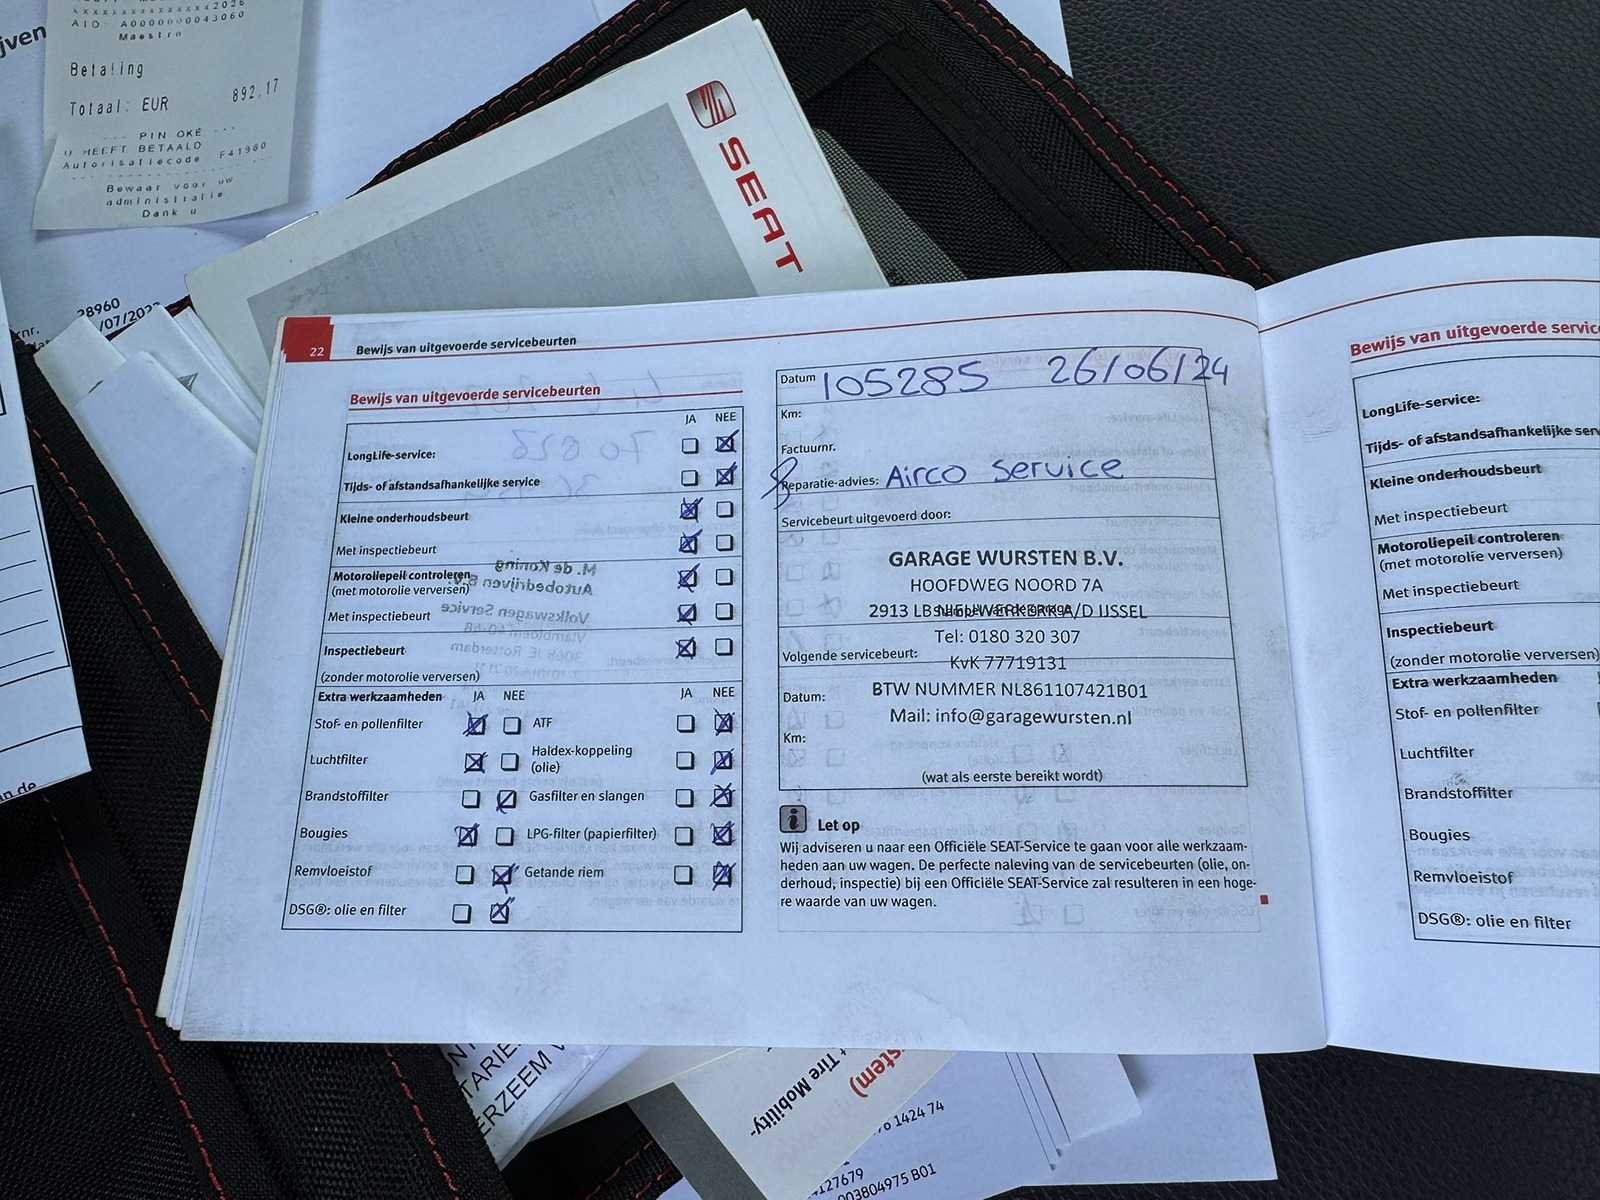 2026
AID: A0000000043060
Maestro
Betaling
Totaal: EUR 892.17
--- PIN OKÉ ---
U HEEFT BETAALD
Autorisatiecode F41980
Bewaar voor uw
administratie
Dank u
jven
28960
/07/202
SEAT
22 Bewijs van uitgevoerde servicebeurten
Bewijs van uitgevoerde servicebeurten
JA NEE
LongLife-service:
Tijds- of afstandsafhankelijke service
Kleine onderhoudsbeurt
Met inspectiebeurt
Motoroliepeil controleren
(met motorolie verversen)
Met inspectiebeurt
Inspectiebeurt
(zonder motorolie verversen)
Extra werkzaamheden JA NEE JA NEE
Stof- en pollenfilter ATF
Luchtfilter Haldex-koppeling
(olie)
Brandstoffilter Gasfilter en slangen
Bougies LPG-filter (papierfilter)
Remvloeistof Getande riem
DSG®: olie en filter
M. de Koning
Autobedrijven B.V.
Volkswagen Service
Datum 105285 26/06/24
Km:
Factuurnr.
Reparatie-advies: Airco service
Servicebeurt uitgevoerd door:
GARAGE WURSTEN B.V.
HOOFDWEG NOORD 7A
2913 LB NIEUWERKERK A/D IJSSEL
Tel: 0180 320 307
Volgende servicebeurt:
KvK 77719131
Datum: BTW NUMMER NL861107421B01
Mail: info@garagewursten.nl
Km:
(wat als eerste bereikt wordt)
i Let op
Wij adviseren u naar een Officiële SEAT-Service te gaan voor alle werkzaam-
heden aan uw wagen. De perfecte naleving van de servicebeurten (olie, on-
derhoud, inspectie) bij een Officiële SEAT-Service zal resulteren in een hoge-
re waarde van uw wagen.
Bewijs van uitgevoerde servic
LongLife-service:
Tijds- of afstandsafhankelijke serv
Kleine onderhoudsbeurt
Met inspectiebeurt
Motoroliepeil controleren
(met motorolie verversen)
Met inspectiebeurt
Inspectiebeurt
(zonder motorolie verversen)
Extra werkzaamheden
Stof- en pollenfilter
Luchtfilter
Brandstoffilter
Bougies
Remvloeistof
DSG®: olie en filter
an de
TARIE
ERZEEM V
stem)
t Tire Mobility-
1424 74
127679
003804975 B01